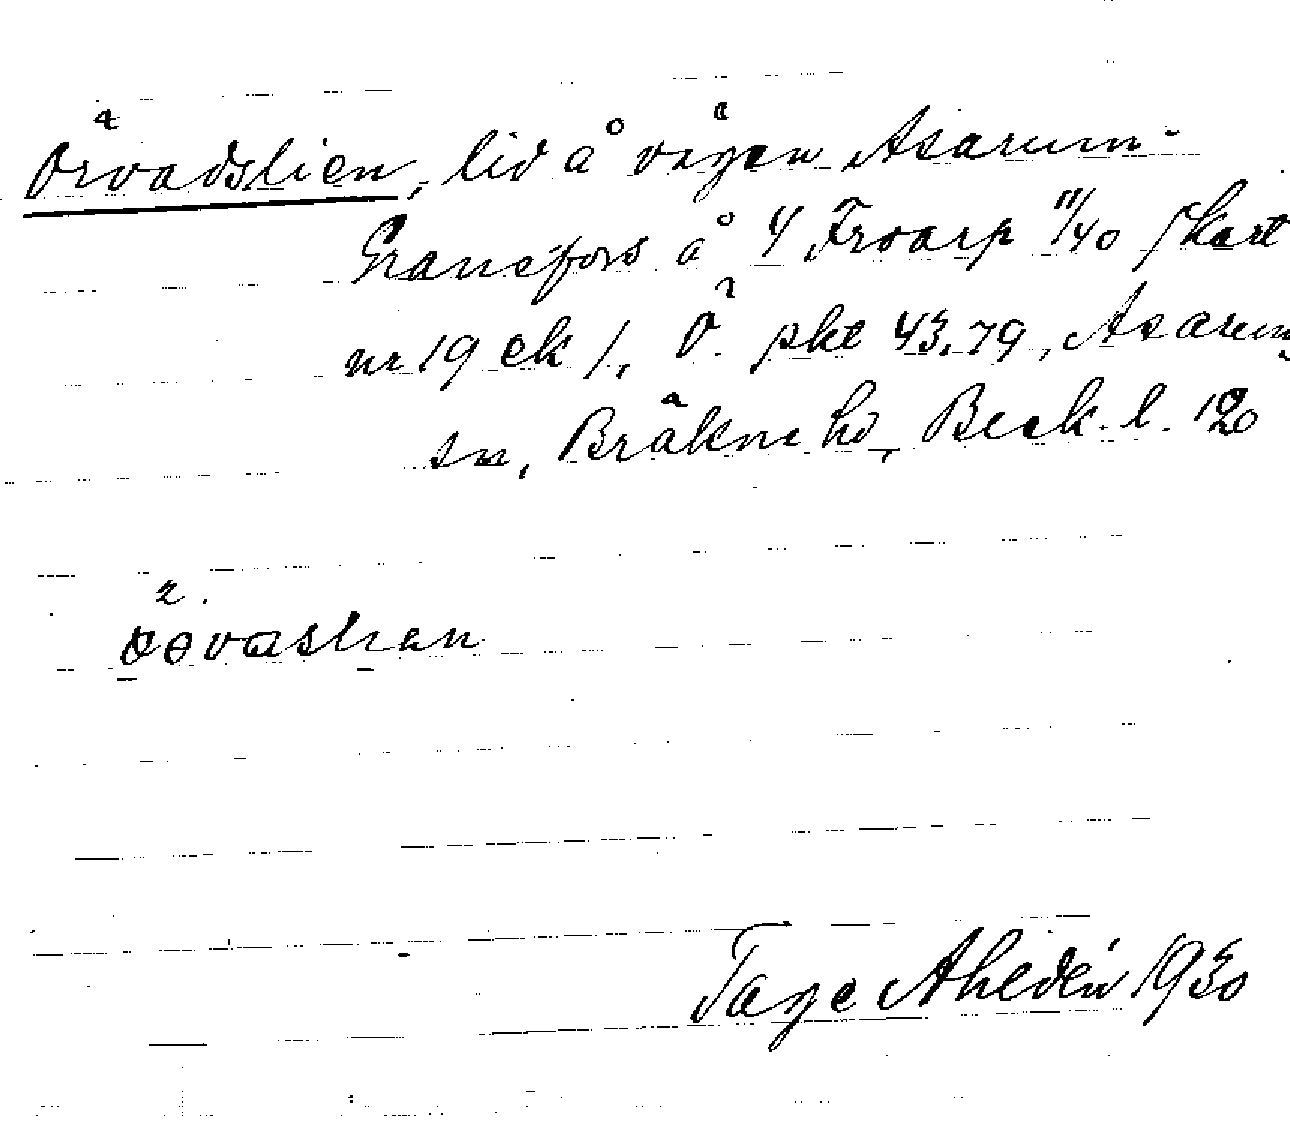 Örvadslien, lid å vägen Asarum-
Granefors å 4 Froarp 11/40 skart
nr 19 ek 1, Ö. pkt 43,79, Asarum
sn, Bräkne hd, Blek. l. 120
Tage Ahedén 1930